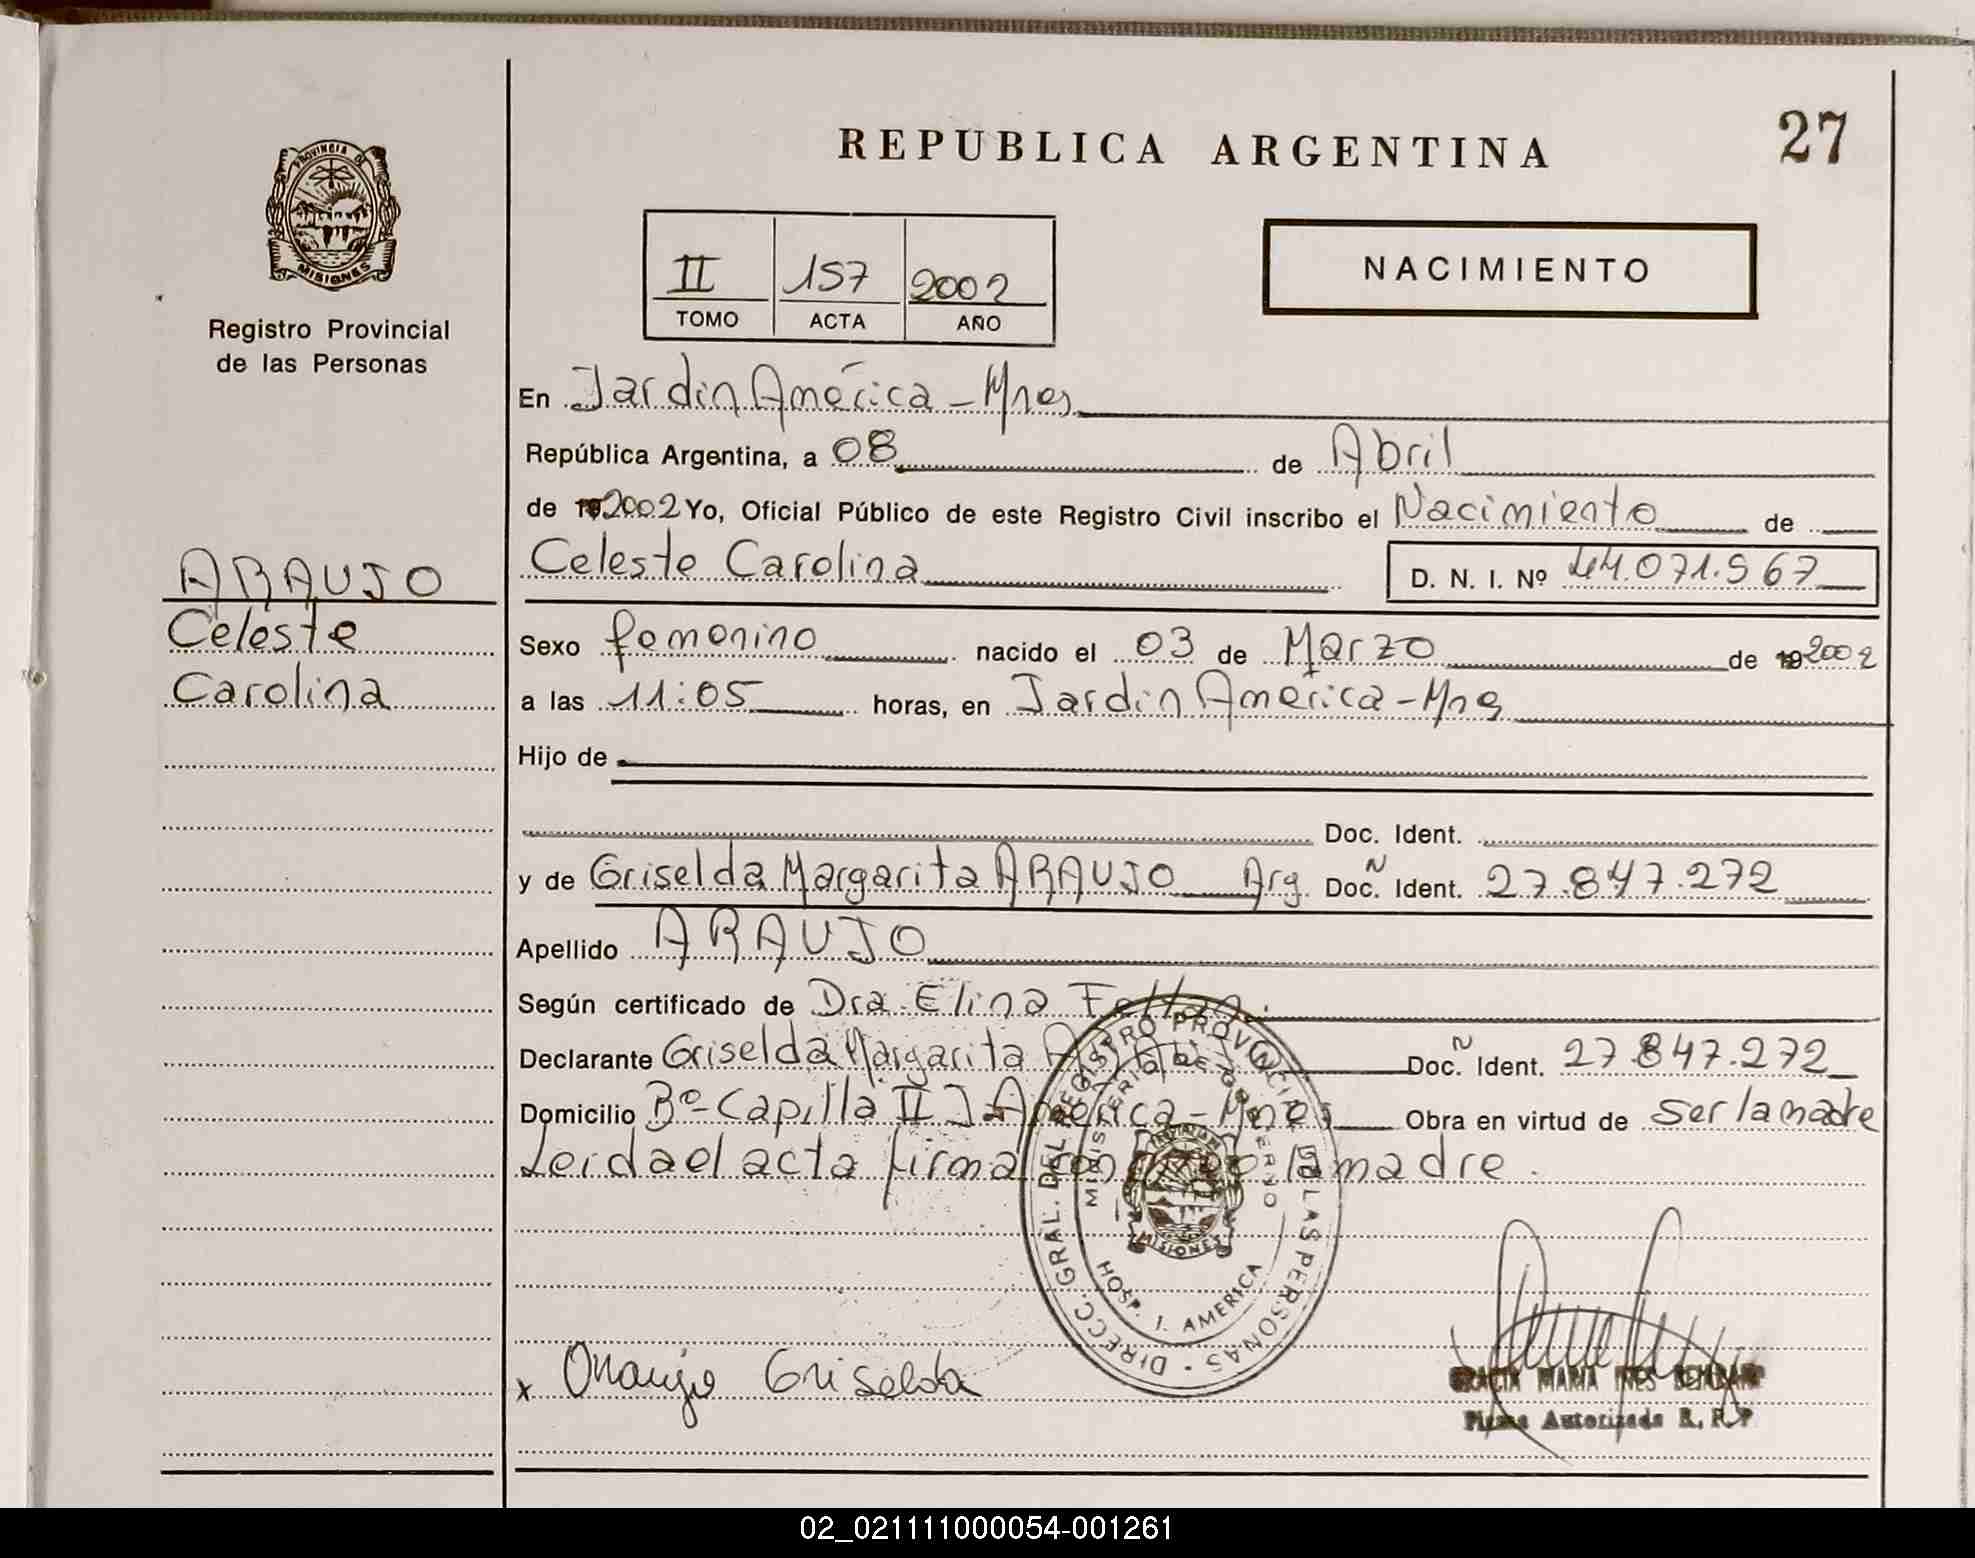 PROVINCIA DE
MISIONES
Registro Provincial
de las Personas
ARAUJO
Celeste
Carolina
REPUBLICA ARGENTINA
27
II 157 2002
TOMO ACTA AÑO
NACIMIENTO
En Jardin América - Mnes
República Argentina, a 08 de Abril
de 19 2002 Yo, Oficial Público de este Registro Civil inscribo el Nacimiento de
Celeste Carolina D. N. I. Nº 44.071.967
Sexo femenino nacido el 03 de Marzo de 19 2002
a las 11:05 horas, en Jardin América - Mnes
Hijo de
Doc. Ident.
y de Griselda Margarita ARAUJO Arg. Doc. N Ident. 27.847.272
Apellido ARAUJO
Según certificado de Dra. Elina
Declarante Griselda Margarita ARAUJO Doc. N Ident. 27.847.272
Domicilio Bº - Capilla II J. América - Mnes Obra en virtud de ser la madre
Leida el acta firma conmigo la madre.
DIRECC. GRAL. DEL REGISTRO PROVINCIAL DE LAS PERSONAS
MINISTERIO DE GOBIERNO
MISIONES
HOSP. J. AMERICA
x Araujo Griselda
MARIA INES
Firma Autorizada R. P. P
02_021111000054-001261